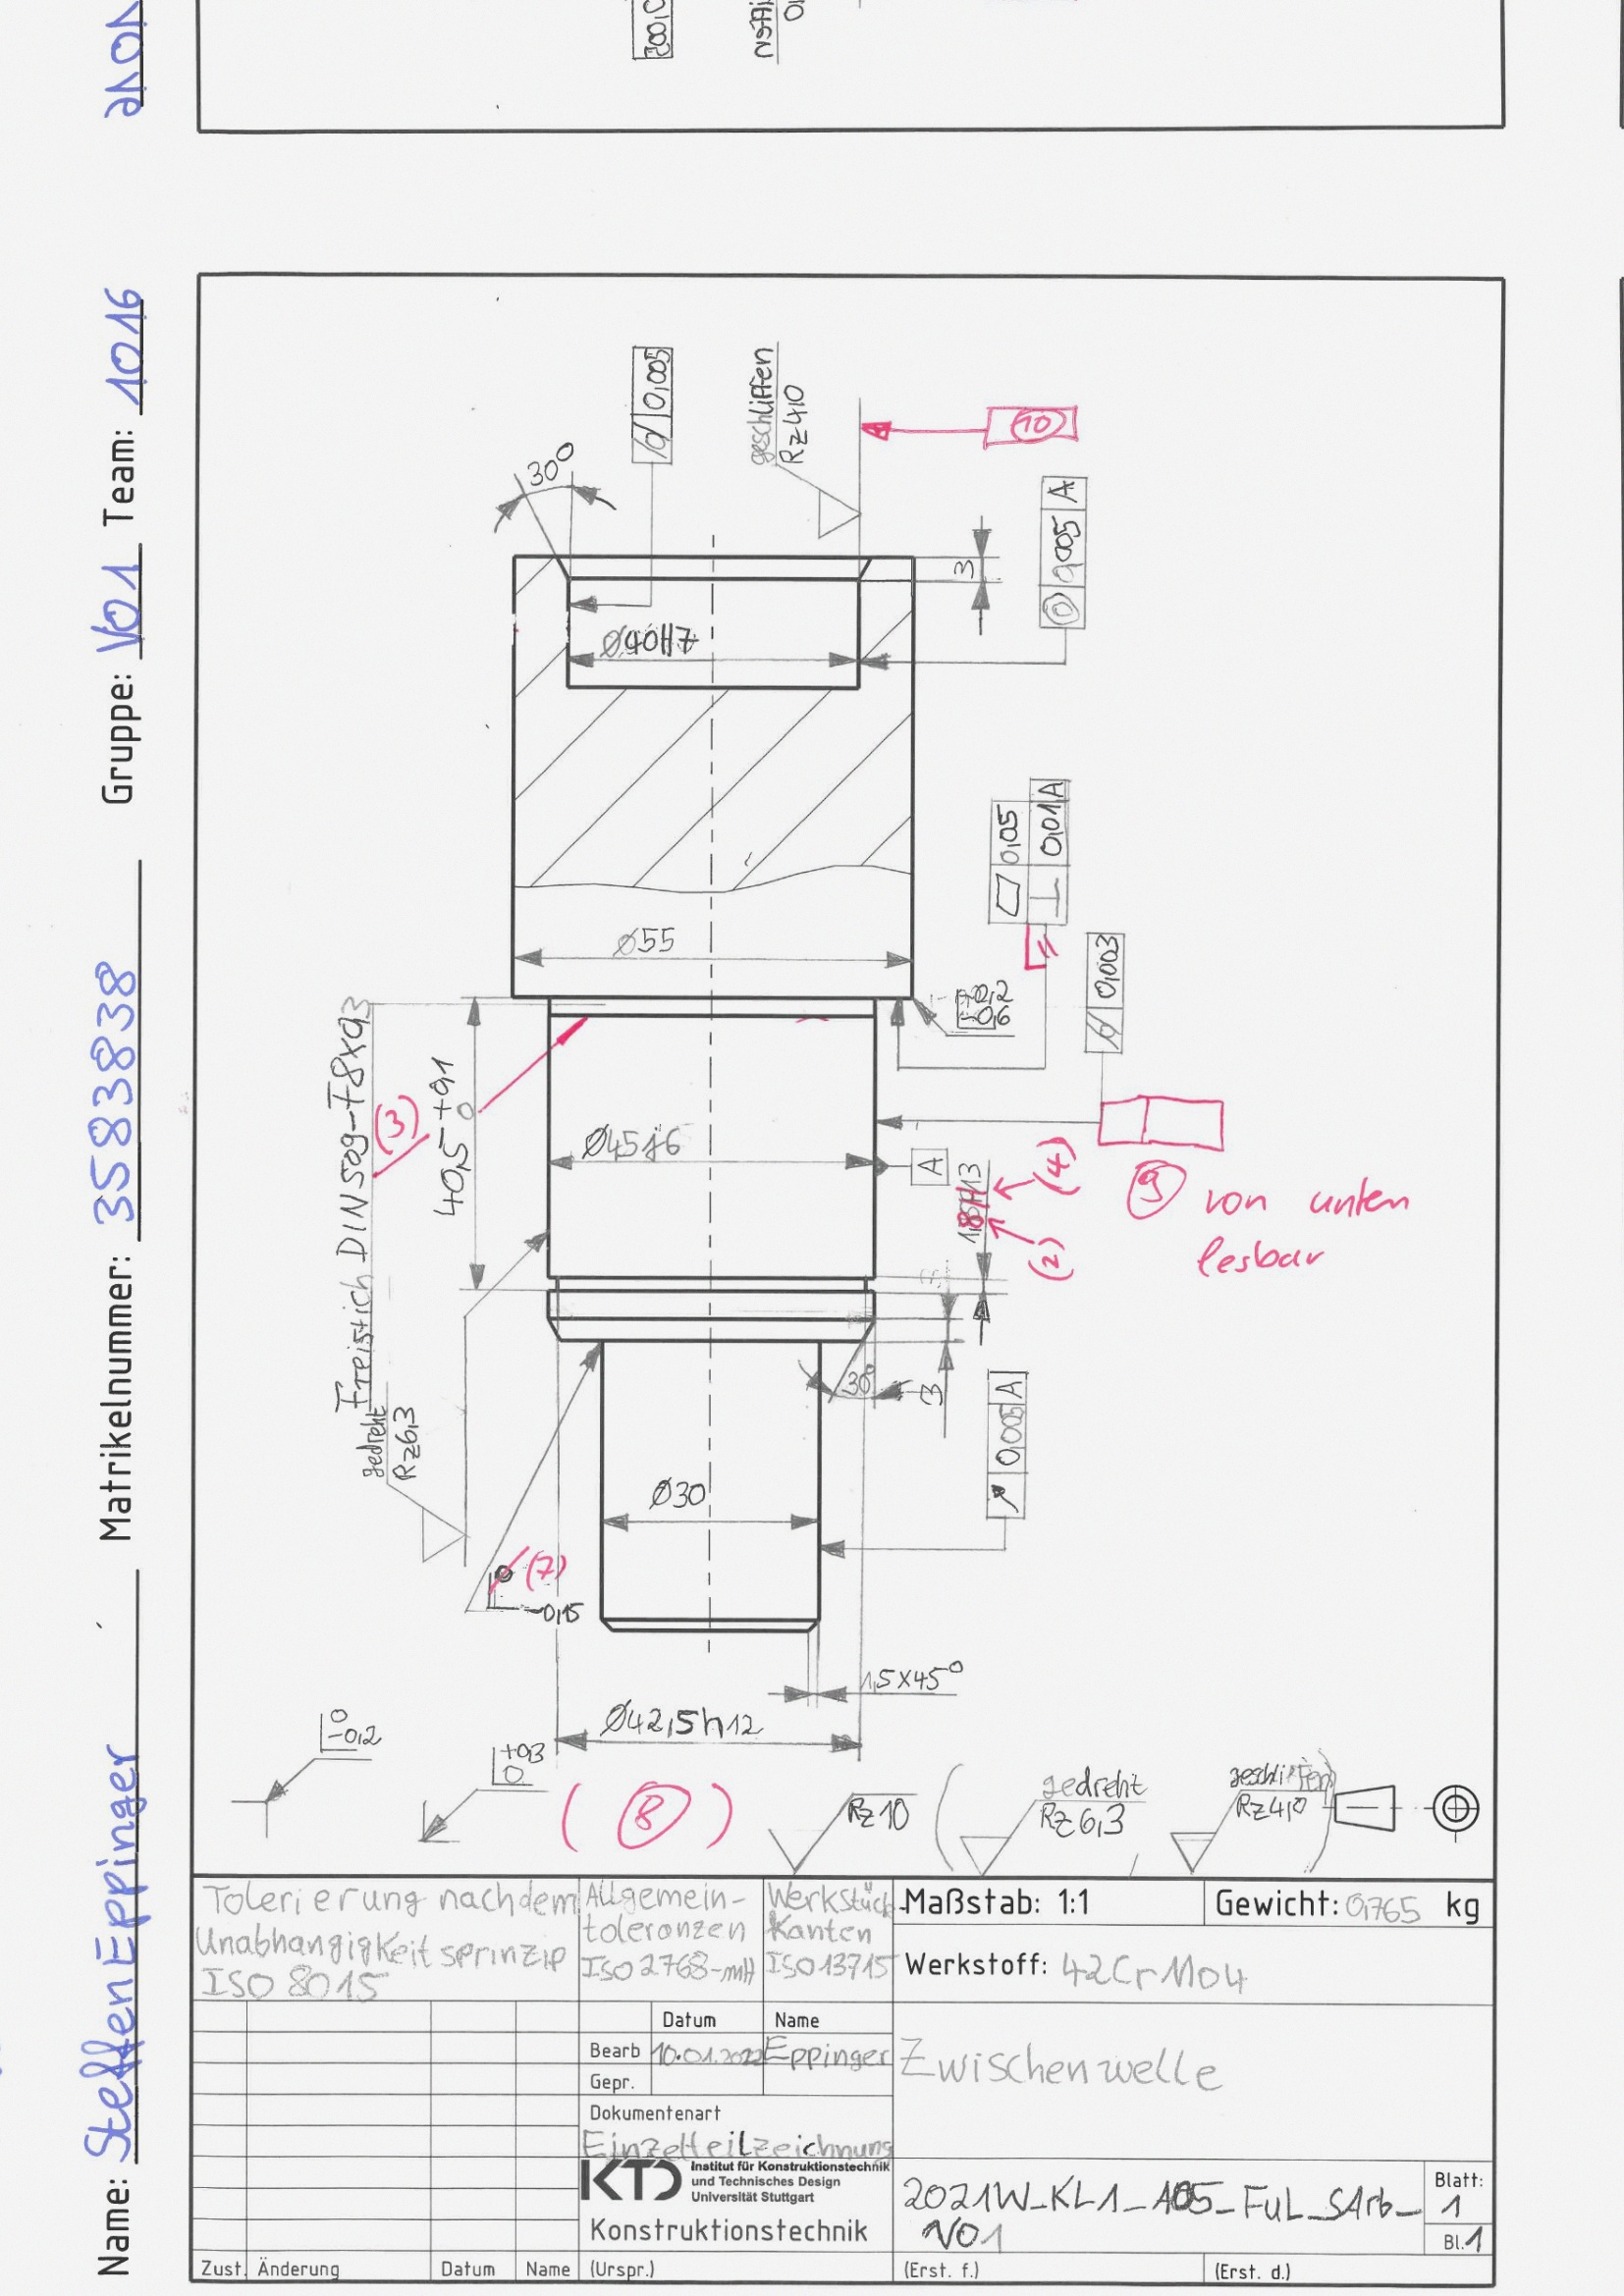 Name: Steffen Eppinger
Matrikelnummer: 3583838
Gruppe: V01
Team: 1016
0,005
30°
geschliffen
Rz4,0
(10)
0,005
3
0,005 A
Ø40H7
0,05
0,01 A
Ø55
11
0,003
-0,2
-0,6
Freistich DIN509-F8x0,3
(3)
40,5 +0,1
0
Ø45j6
A
(4)
(2)
9 von unten
lesbar
gedreht
Rz6,3
30°
3
0,005 A
Ø30
(7)
-0,15
1,5x45°
Ø42,5h12
0
-0,2
+0,3
0
(8)
Rz10
gedreht
Rz6,3
geschliffen
Rz4,0
Tolerierung nach dem
Unabhängigkeitsprinzip
ISO 8015
Allgemein-
toleranzen
ISO 2768-mH
Werkstück
Kanten
ISO13715
Maßstab: 1:1
Gewicht: 0,765 kg
Werkstoff: 42CrMo4
Datum Name
Bearb 10.01.2022 Eppinger
Gepr.
Zwischenwelle
Dokumentenart
Einzelteilzeichnung
KTD
Institut für Konstruktionstechnik
und Technisches Design
Universität Stuttgart
Konstruktionstechnik
2021W_KL1_A05_FuL_SArb_
V01
Blatt:
1
Bl.1
Zust. Änderung Datum Name (Urspr.) (Erst. f.) (Erst. d.)